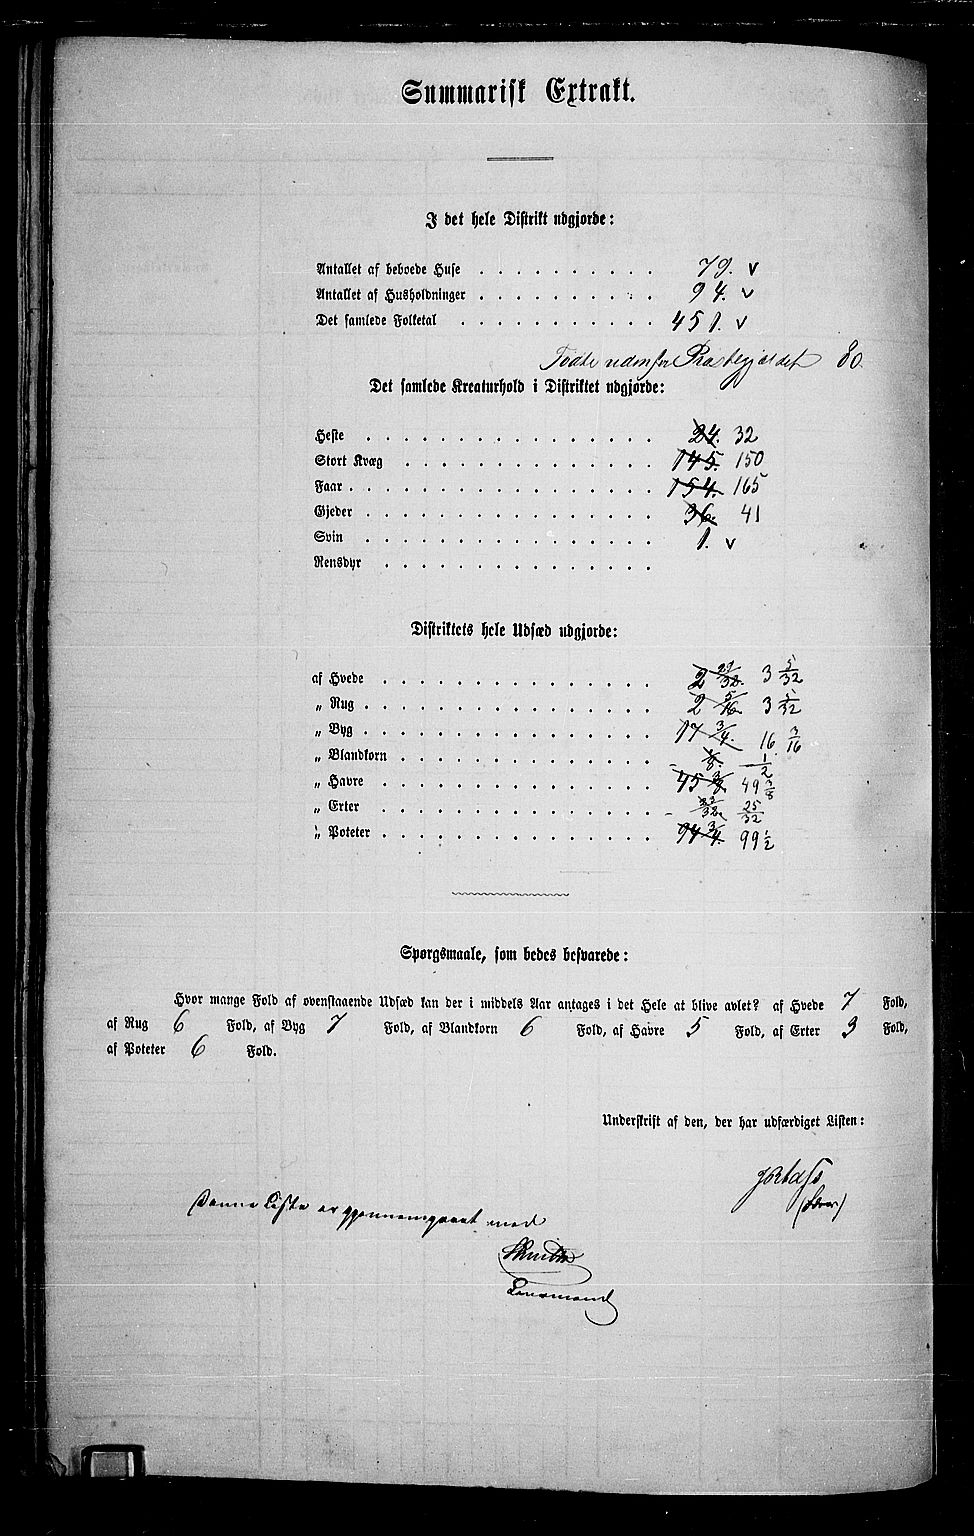 Summarisk Extrakt.
I det hele Distrikt udgjorde:
Antallet af beboede Huse . . . . . . . . . . 79. v
Antallet af Husholdninger . . . . . . . . . . 94. v
Det samlede Folketal . . . . . . . . . . . 451. v
Födte udenfor Præstegjældet 80.
Det samlede Kreaturhold i Distriktet udgjorde:
Heste . . . . . . . . . . . . . . . . 24. 32
Stort Kvæg . . . . . . . . . . . . . . 145. 150
Faar . . . . . . . . . . . . . . . . . 154. 165
Gjeder . . . . . . . . . . . . . . . . 36. 41
Svin . . . . . . . . . . . . . . . . 1. v
Rensdyr . . . . . . . . . . . . . . .
Distriktets hele Udsæd udgjorde:
af Hvede . . . . . . . . . . . . . . . 2 29/32. 3 5/32
„ Rug . . . . . . . . . . . . . . . . 2 5/16. 3 5/32
„ Byg . . . . . . . . . . . . . . . . 17 3/4. 16 3/16
„ Blandkorn . . . . . . . . . . . . . . 1/2
„ Havre . . . . . . . . . . . . . . . 45 49 3/8
„ Erter . . . . . . . . . . . . . . . 25/32
„ Poteter . . . . . . . . . . . . . . . 94 3/4. 99 1/2
Spørgsmaale, som bedes besvarede:
Hvor mange Fold af ovenstaaende Udsæd kan der i middels Aar antages i det Hele at blive avlet? af Hvede 7 Fold,
af Rug 6 Fold, af Byg 7 Fold, af Blandkorn 6 Fold, af Havre 5 Fold, af Erter 3 Fold,
af Poteter 6 Fold.
Underskrift af den, der har udfærdiget Listen:
Denne Liste er gjennemgaaet med
Lensmand